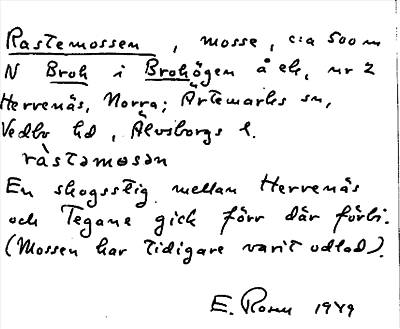 Rastemossen, mosse, c:a 500 m
N Broh i Brohögen å ek, nr 2
Hervenäs, Norra; Ärtemarks sn,
Vedbo hd, Älvsborgs l.
ràstəmosən
En skogsstig mellan Hervenäs
och Tegane gick förr där förbi.
(Mossen har tidigare varit odlad).
E. 1949